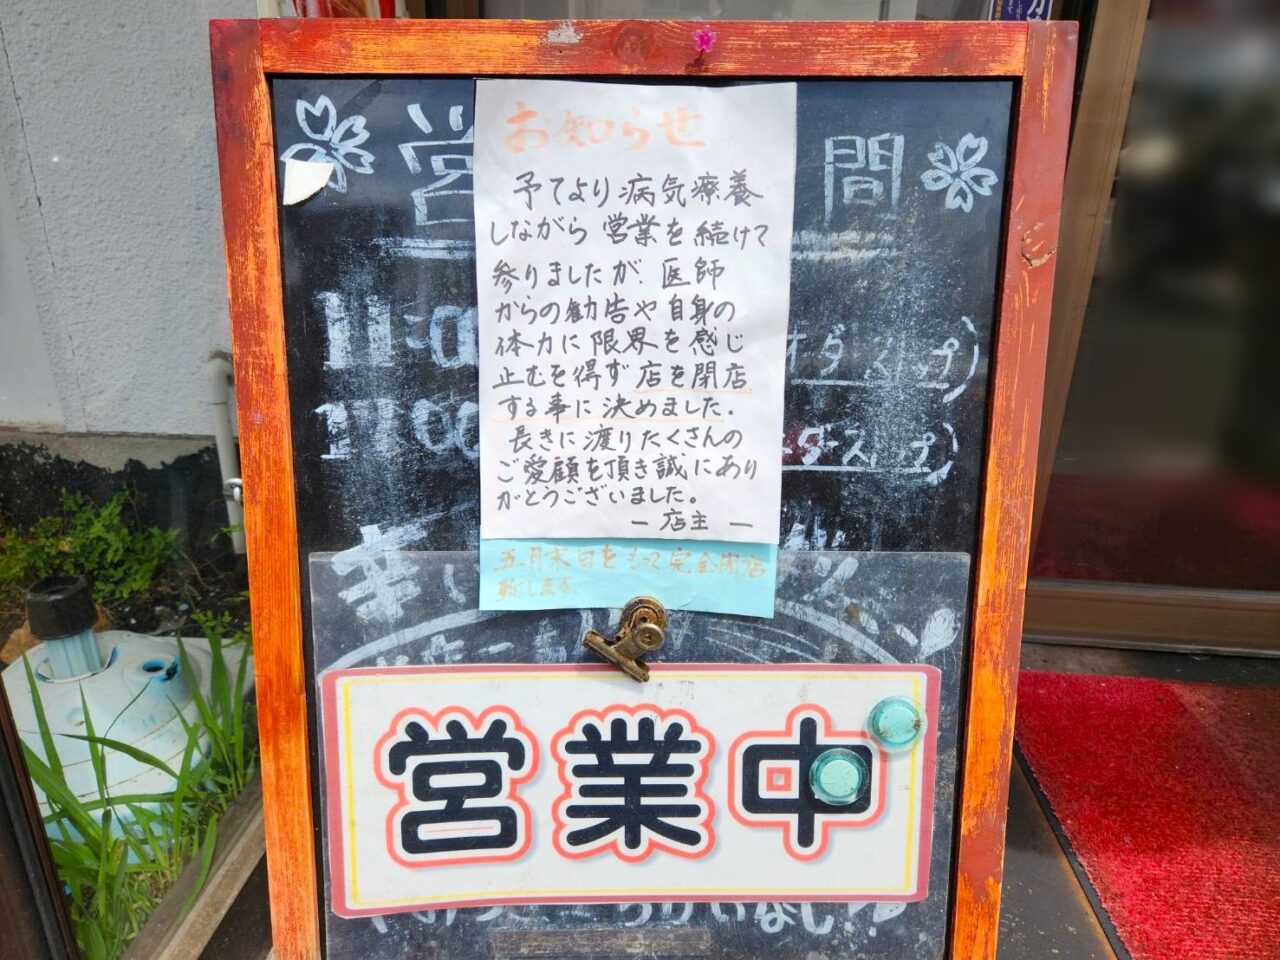 お知らせ
予てより病気療養
しながら営業を続けて
参りましたが、医師
からの勧告や自身の
体力に限界を感じ
止むを得ず店を閉店
する事に決めました。
長きに渡りたくさんの
ご愛顧を頂き誠にあり
がとうございました。
ー店主ー
五月末日をもって完全閉店
致します。
営 間
11:00 オーダーストップ)
17:00 ダーストップ)
営業中